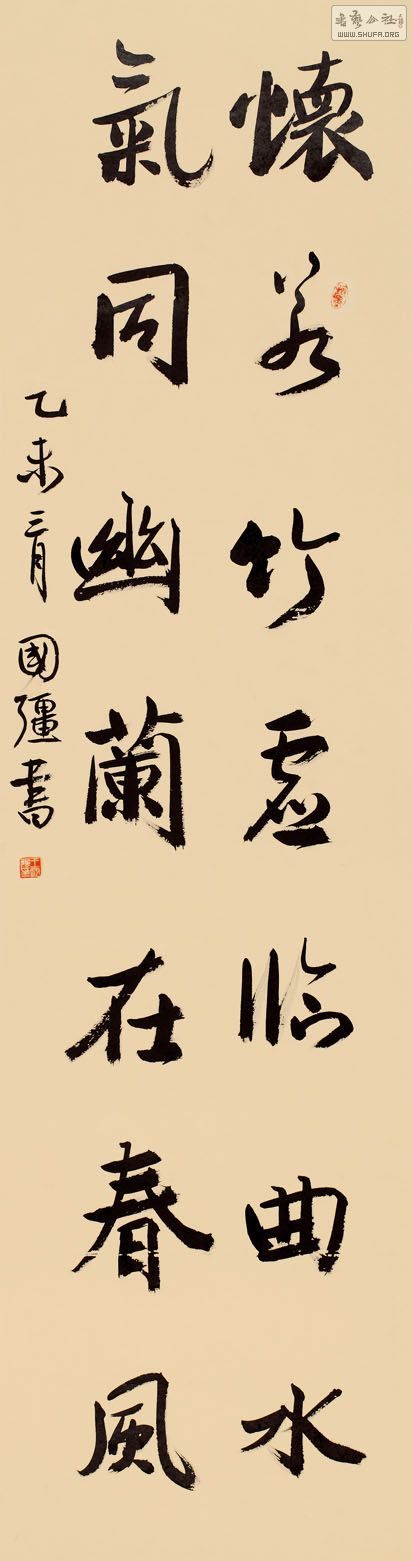 懷若竹虛臨曲水
氣同幽蘭在春風
乙未三月 國疆書
書藝公社
WWW.SHUFA.ORG